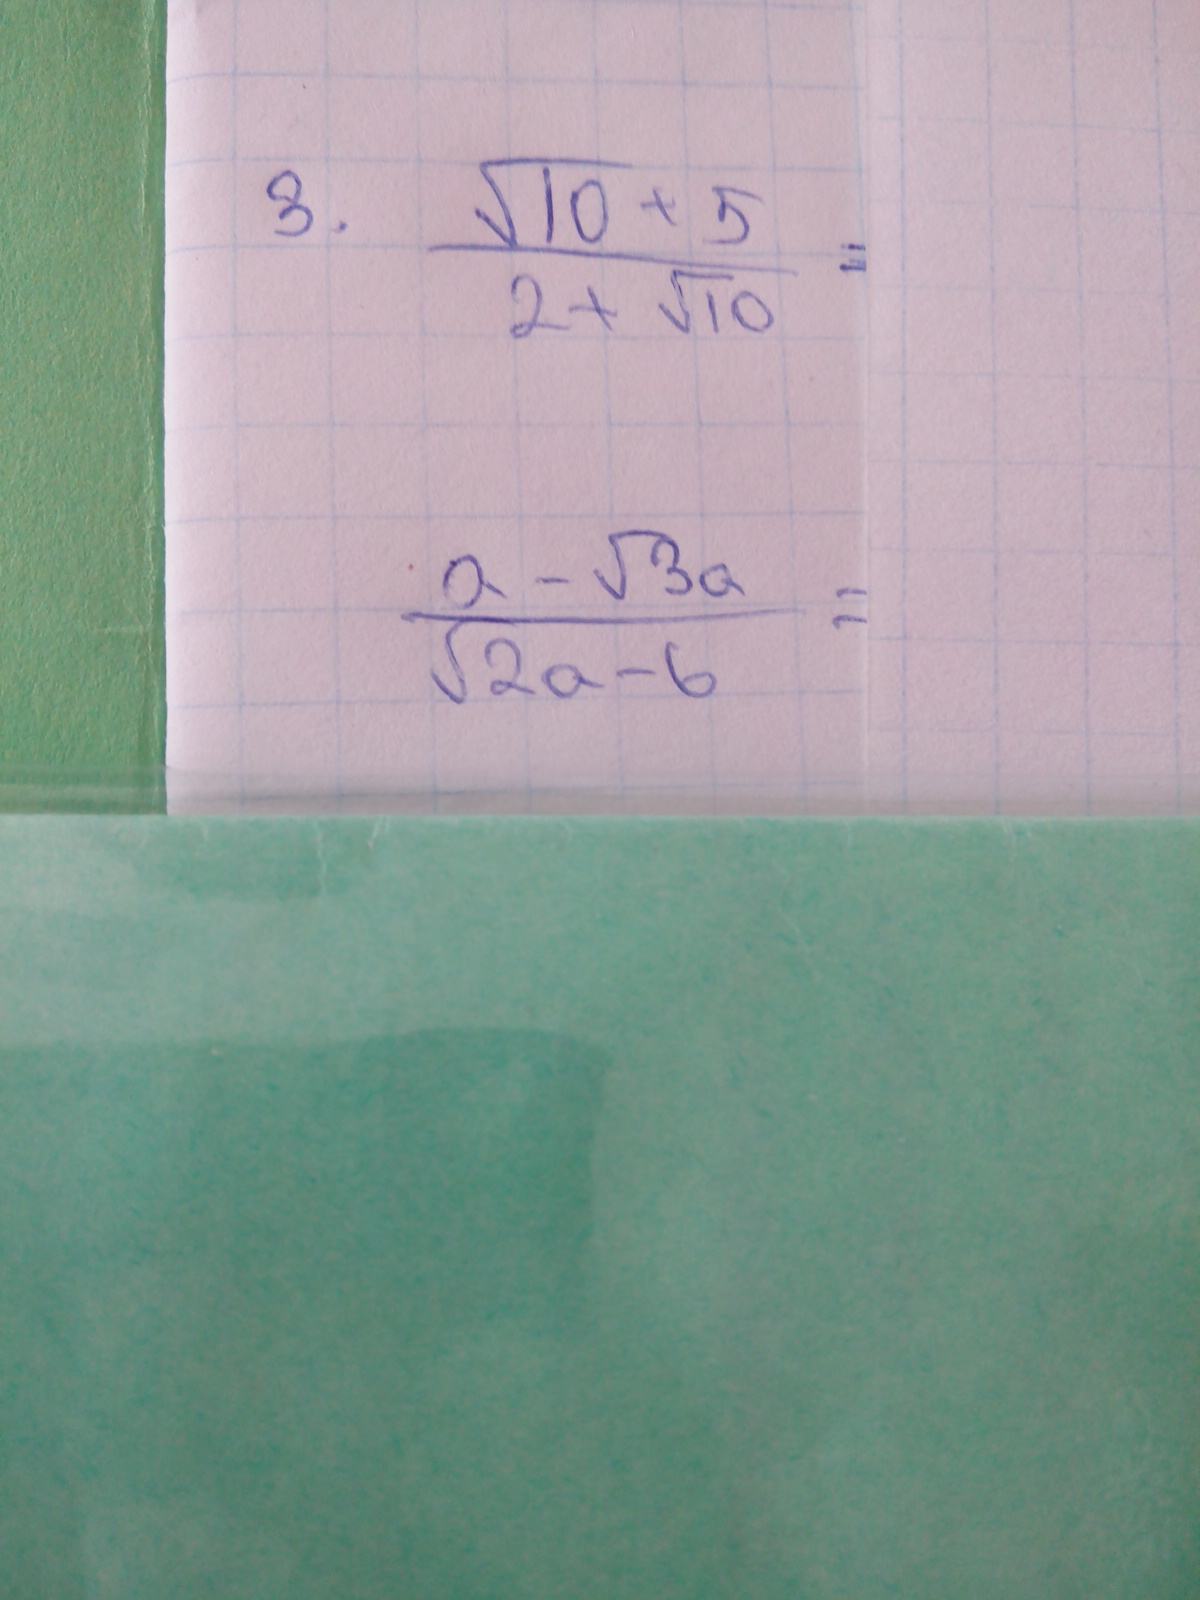 3. √10 + 5
2 + √10 =
a - √3a
√2a - 6 =